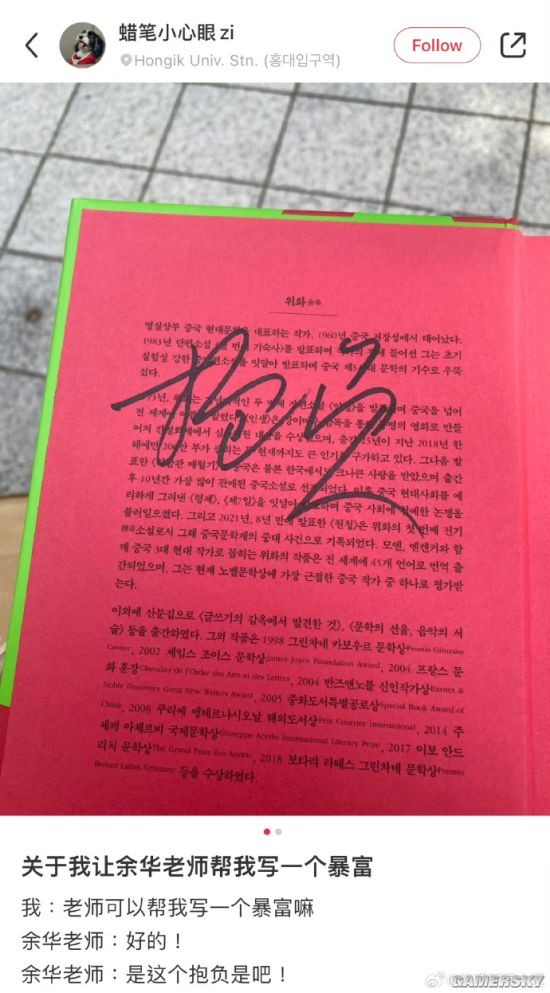 蜡笔小心眼zi
Hongik Univ. Stn. (홍대입구역)
Follow
위화 余华
명실상부 중국 현대문학을 대표하는 작가. 1960년 중국 저장성에서 태어났다.
1983년 단편소설 기숙사〉를 발표하며 들어선 그는 초기
실험성 강한 잇달아 발표하며 중국 제3세대 문학의 기수로 우뚝
섰다.
두 번째 장편소설 중국을 넘어
전 세계에 《인생》은 장이머우 감독을 영화로 만들
어져 칸영화제에서 출간 25년이 지난 2018년 한
해에만 200만 부가 현재까지도 큰 인기를 구가하고 있다. 그다음 발
표한 매혈기》는 중국은 물론 한국에서도 크나큰 사랑을 받았으며 출간
후 10년간 가장 많이 판매된 중국소설로 이후 중국 현대사회를 예
리하게 그려낸 《형제》, 《제7일》을 잇달아 중국 사회에 첨예한 논쟁을
불러일으켰다. 그리고 2021년, 8년 만에 발표한 《원청》은 위화의 첫 번째 전기
傳奇소설로서 그해 중국문학계의 중대 사건으로 기록되었다. 모옌, 옌롄커와 함
께 중국 3대 현대 작가로 꼽히는 위화의 작품은 전 세계에 45개 언어로 번역 출
간되었으며, 그는 현재 노벨문학상에 가장 근접한 중국 작가 중 하나로 평가받
는다.
抱负
이외에 산문집으로 《글쓰기의 감옥에서 발견한 것》, 《문학의 선율, 음악의 서
술》 등을 출간하였다. 그의 작품은 1998 그린차네 카보우르 문학상Premio Grinzane
Cavour, 2002 제임스 조이스 문학상James Joyce Foundation Award, 2004 프랑스 문
화 훈장Chevalier de l'Ordre des Arts et des Lettres, 2004 반즈앤노블 신인작가상Barnes &
Noble Discovery Great New Writers Award, 2005 중화도서특별공로상Special Book Award of
China, 2008 쿠리에 앵테르나시오날 해외도서상Prix Courrier International, 2014 주
세페 아체르비 국제문학상Giuseppe Acerbi International Literary Prize, 2017 이보 안드
리치 문학상The Grand Prize Ivo Andric, 2018 보타리 라테스 그린차네 문학상Premio
Bottari Lattes Grinzane 등을 수상하였다.
关于我让余华老师帮我写一个暴富
我：老师可以帮我写一个暴富嘛
余华老师：好的！
余华老师：是这个抱负是吧！
GAMERSKY